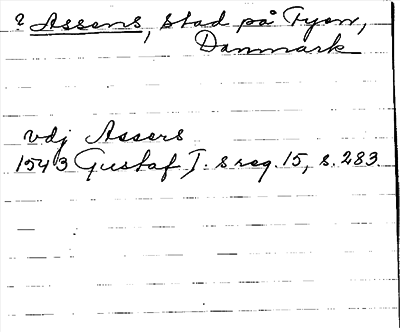 ? Assens, stad på Fyen,
Danmark
vdj Assers
1543 Gustaf I. s reg. 15, s. 283.